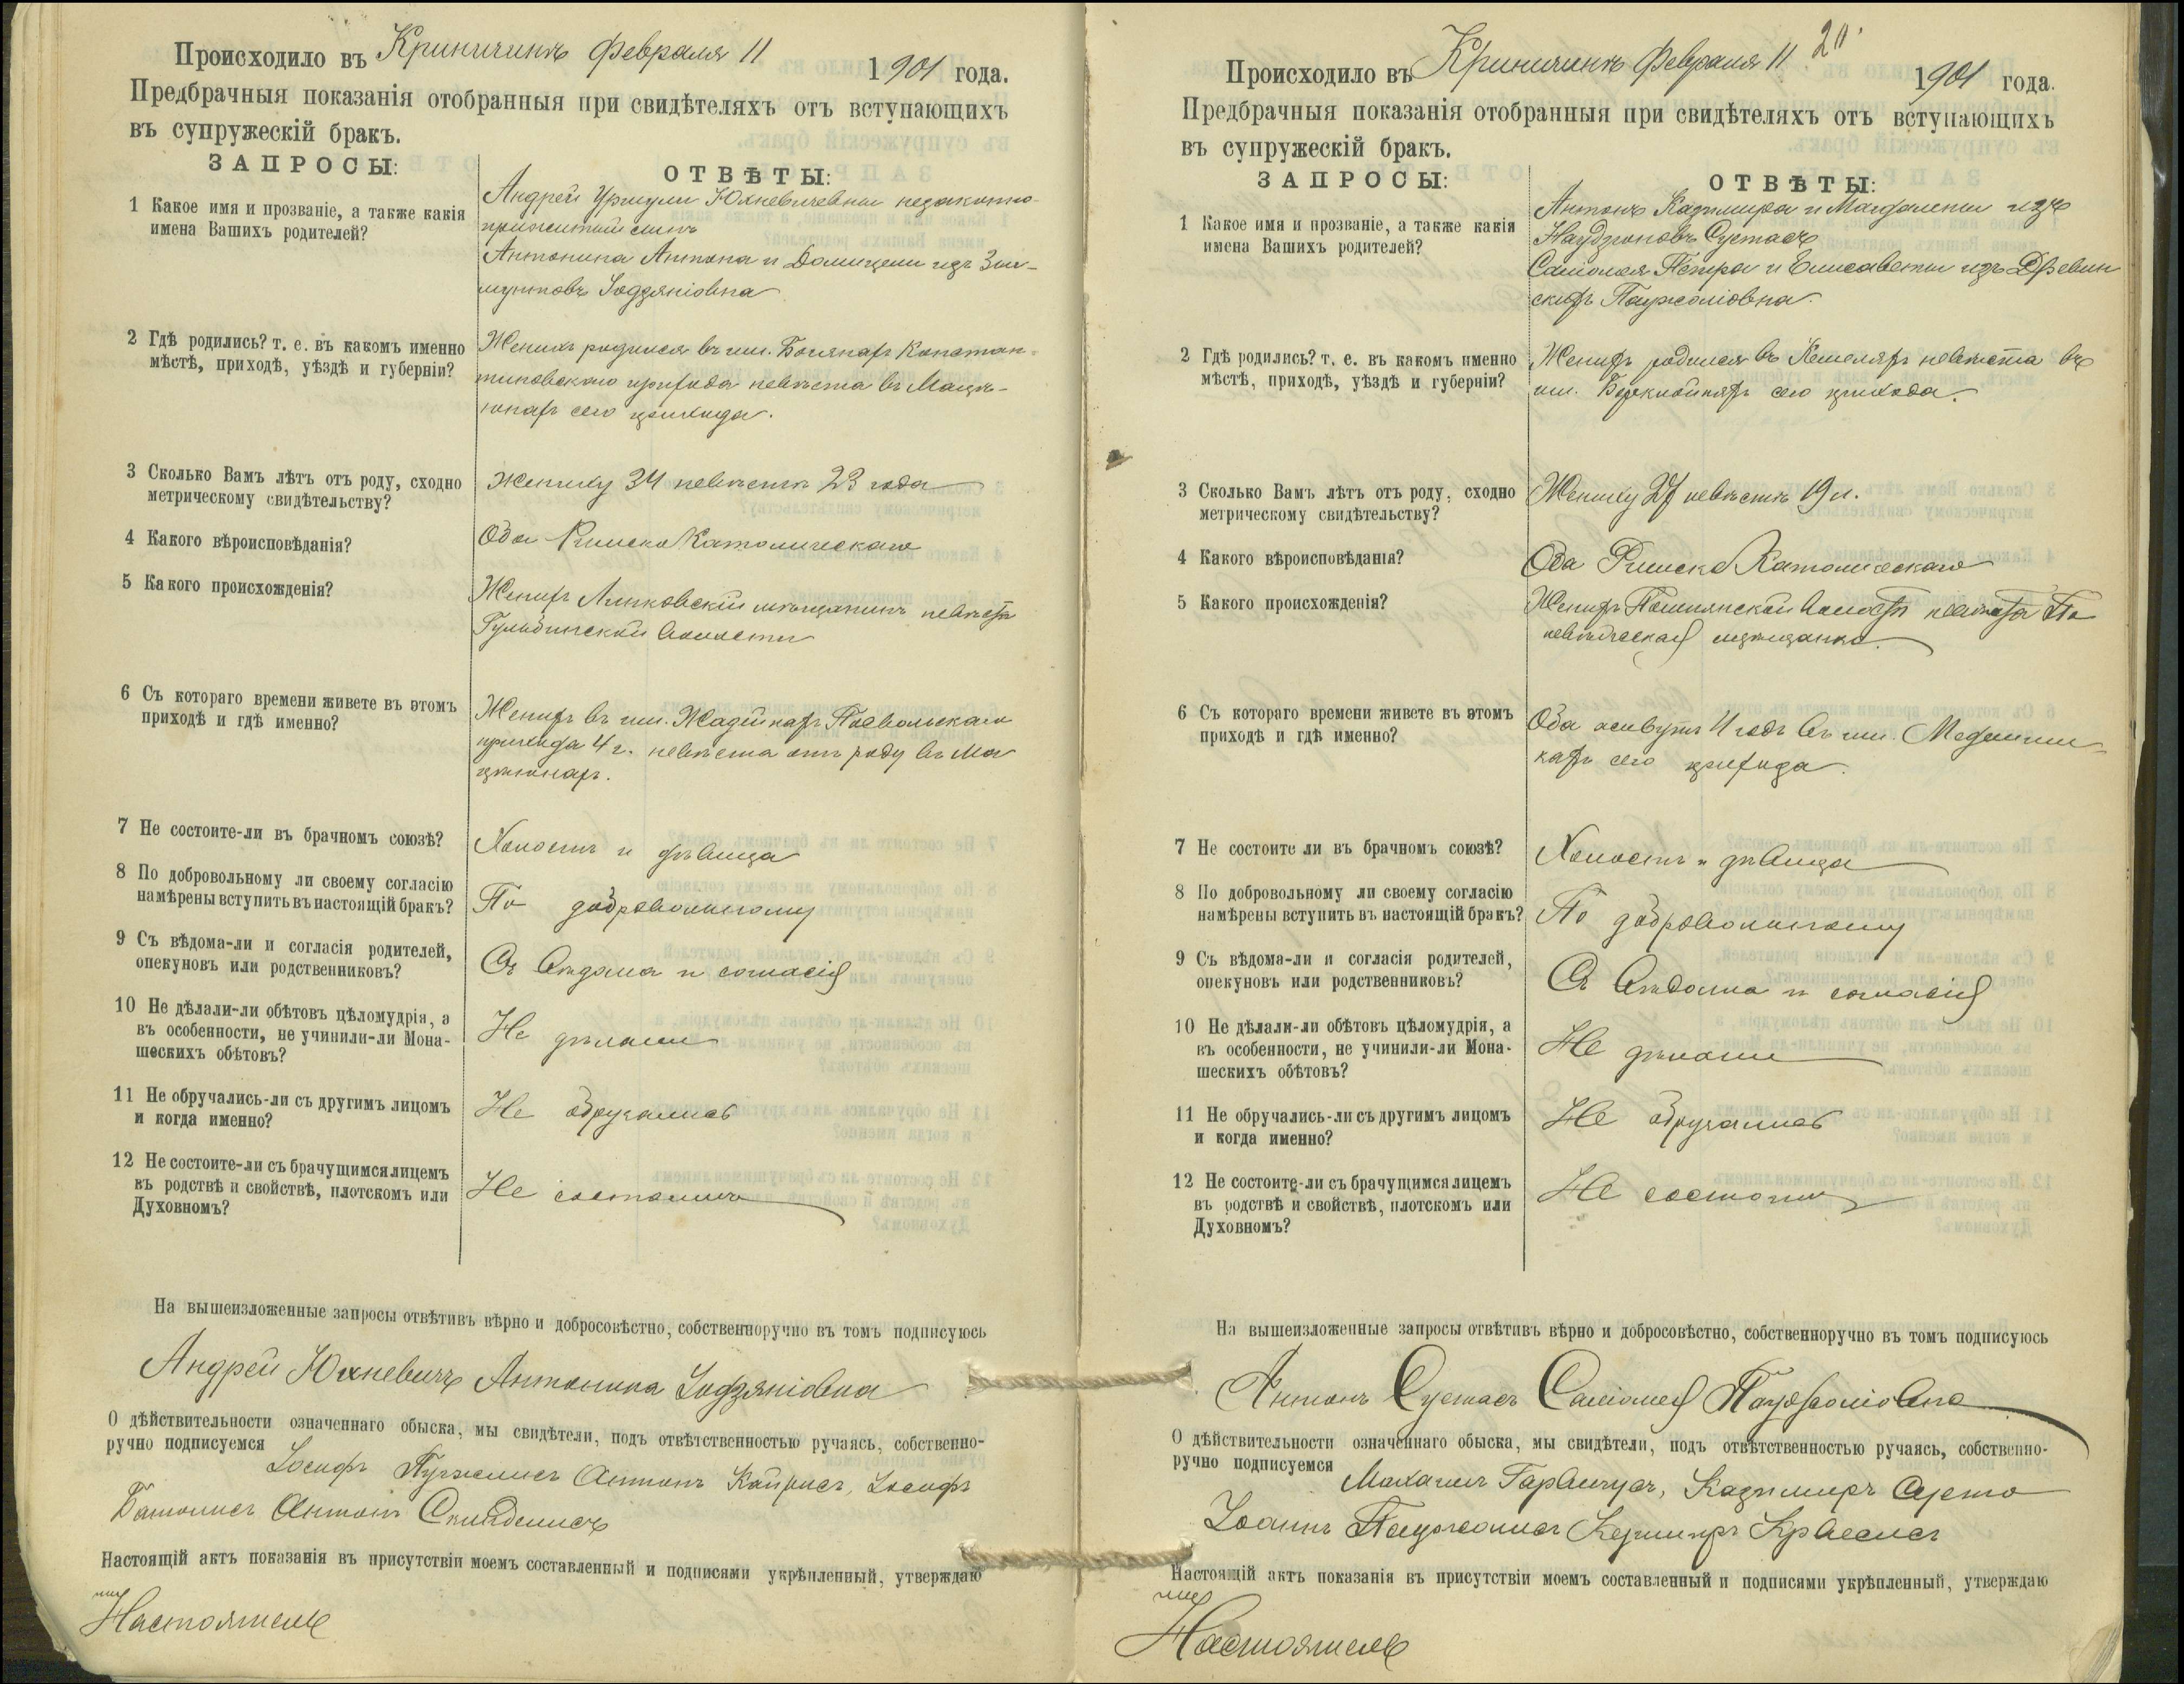 Происходило въ Криничинѣ Февраля 11 1901 года.
Предбрачныя показанія отобранныя при свидѣтеляхъ отъ вступающихъ
въ супружескій бракъ.
ЗАПРОСЫ:
ОТВѢТЫ:
1 Какое имя и прозваніе, а также какія
имена Вашихъ родителей?
Андрей Уршули Юхневичевны незаконно-
прижитый сынъ
Антонина Антона и Доминели изъ
Іодзяніовна
2 Гдѣ родились? т. е. въ какомъ именно
мѣстѣ, приходѣ, уѣздѣ и губерніи?
Женихъ родился въ им. Констан-
тиновскаго прихода невѣста въ Мацю-
нахъ сего прихода.
3 Сколько Вамъ лѣтъ отъ роду, сходно
метрическому свидѣтельству?
Жениху 34 невѣстѣ 23 года
4 Какого вѣроисповѣданія?
Оба Римско Католическаго
5 Какого происхожденія?
Женихъ мѣщанинъ невѣста
волости
6 Съ котораго времени живете въ этомъ
приходѣ и гдѣ именно?
Женихъ въ им. Жадейкахъ Посвольскаго
прихода 4 г. невѣста отъ роду въ Ма
цюнахъ.
7 Не состоите-ли въ брачномъ союзѣ?
Холостъ и дѣвица
8 По добровольному ли своему согласію
намѣрены вступить въ настоящій бракъ?
По добровольному
9 Съ вѣдома-ли и согласія родителей,
опекуновъ или родственниковъ?
Съ вѣдома и согласія
10 Не дѣлали-ли обѣтовъ цѣломудрія, а
въ особенности, не учинили-ли Мона-
шескихъ обѣтовъ?
Не дѣлали
11 Не обручались-ли съ другимъ лицомъ
и когда именно?
Не обручались
12 Не состоите-ли съ брачущимся лицемъ
въ родствѣ и свойствѣ, плотскомъ или
Духовномъ?
Не состоимъ
На вышеизложенные запросы отвѣтивъ вѣрно и добросовѣстно, собственноручно въ томъ подписуюсь
Андрей Юхневичъ Антонина Іодзяніовна
О дѣйствительности означеннаго обыска, мы свидѣтели, подъ отвѣтственностью ручаясь, собственно-
ручно подписуемся Іосифъ Антонъ Кайрисъ, Іосифъ
Антонъ
Настоящій актъ показанія въ присутствіи моемъ составленный и подписями укрѣпленный, утверждаю
Настоятель
Происходило въ Криничинѣ Февраля 11 1901 года.
20
Предбрачныя показанія отобранныя при свидѣтеляхъ отъ вступающихъ
въ супружескій бракъ.
ЗАПРОСЫ:
ОТВѢТЫ:
1 Какое имя и прозваніе, а также какія
имена Вашихъ родителей?
Антонъ Казимира и Магдалены изъ
Наудзюновъ Сустасъ
Саломея Петра и Елисаветы изъ Древин
скихъ Паужоліовна.
2 Гдѣ родились? т. е. въ какомъ именно
мѣстѣ, приходѣ, уѣздѣ и губерніи?
Женихъ родился въ невѣста въ
им. сего прихода.
3 Сколько Вамъ лѣтъ отъ роду, сходно
метрическому свидѣтельству?
Жениху 27 невѣстѣ 19 л.
4 Какого вѣроисповѣданія?
Оба Римско Католическаго
5 Какого происхожденія?
Женихъ волости невѣста По
невѣжская мѣщанка.
6 Съ котораго времени живете въ этомъ
приходѣ и гдѣ именно?
Оба живутъ годъ въ им.
кахъ сего прихода.
7 Не состоите ли въ брачномъ союзѣ?
Холостъ и дѣвица
8 По добровольному ли своему согласію
намѣрены вступить въ настоящій бракъ?
По добровольному
9 Съ вѣдома-ли и согласія родителей,
опекуновъ или родственниковъ?
Съ вѣдома и согласія
10 Не дѣлали-ли обѣтовъ цѣломудрія, а
въ особенности, не учинили-ли Мона-
шескихъ обѣтовъ?
Не дѣлали
11 Не обручались-ли съ другимъ лицомъ
и когда именно?
Не обручались
12 Не состоите-ли съ брачущимся лицемъ
въ родствѣ и свойствѣ, плотскомъ или
Духовномъ?
Не состоимъ
На вышеизложенные запросы отвѣтивъ вѣрно и добросовѣстно, собственноручно въ томъ подписуюсь
Антонъ Сустасъ Саломея Паужоліовна
О дѣйствительности означеннаго обыска, мы свидѣтели, подъ отвѣтственностью ручаясь, собственно-
ручно подписуемся Михаилъ Казимиръ
Іоаннъ Паужолисъ
Настоящій актъ показанія въ присутствіи моемъ составленный и подписями укрѣпленный, утверждаю
Настоятель